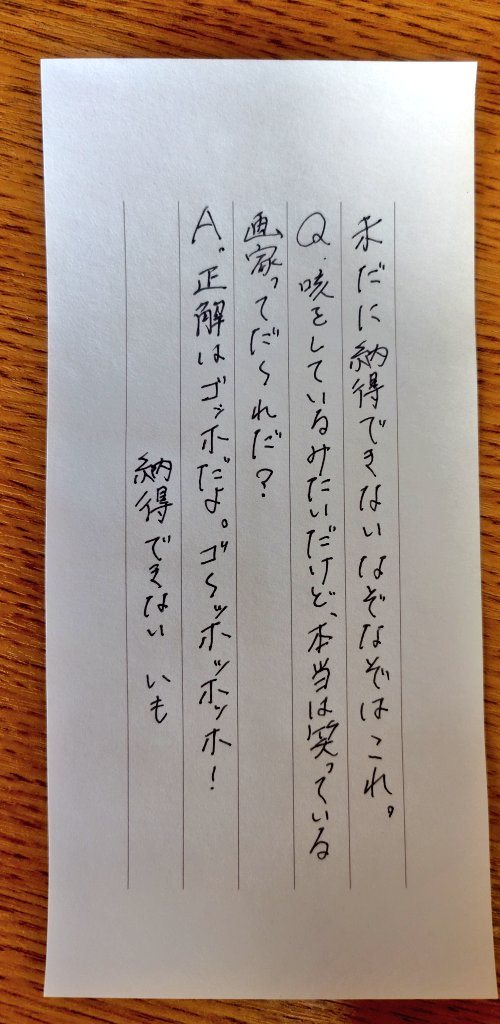 未だに納得できないなぞなぞはこれ。
Q.咳をしているみたいだけど、本当は笑っている
画家ってだ〜れだ?
A.正解はゴッホだよ。ゴ〜ッホッホッホ!
納得できない いも